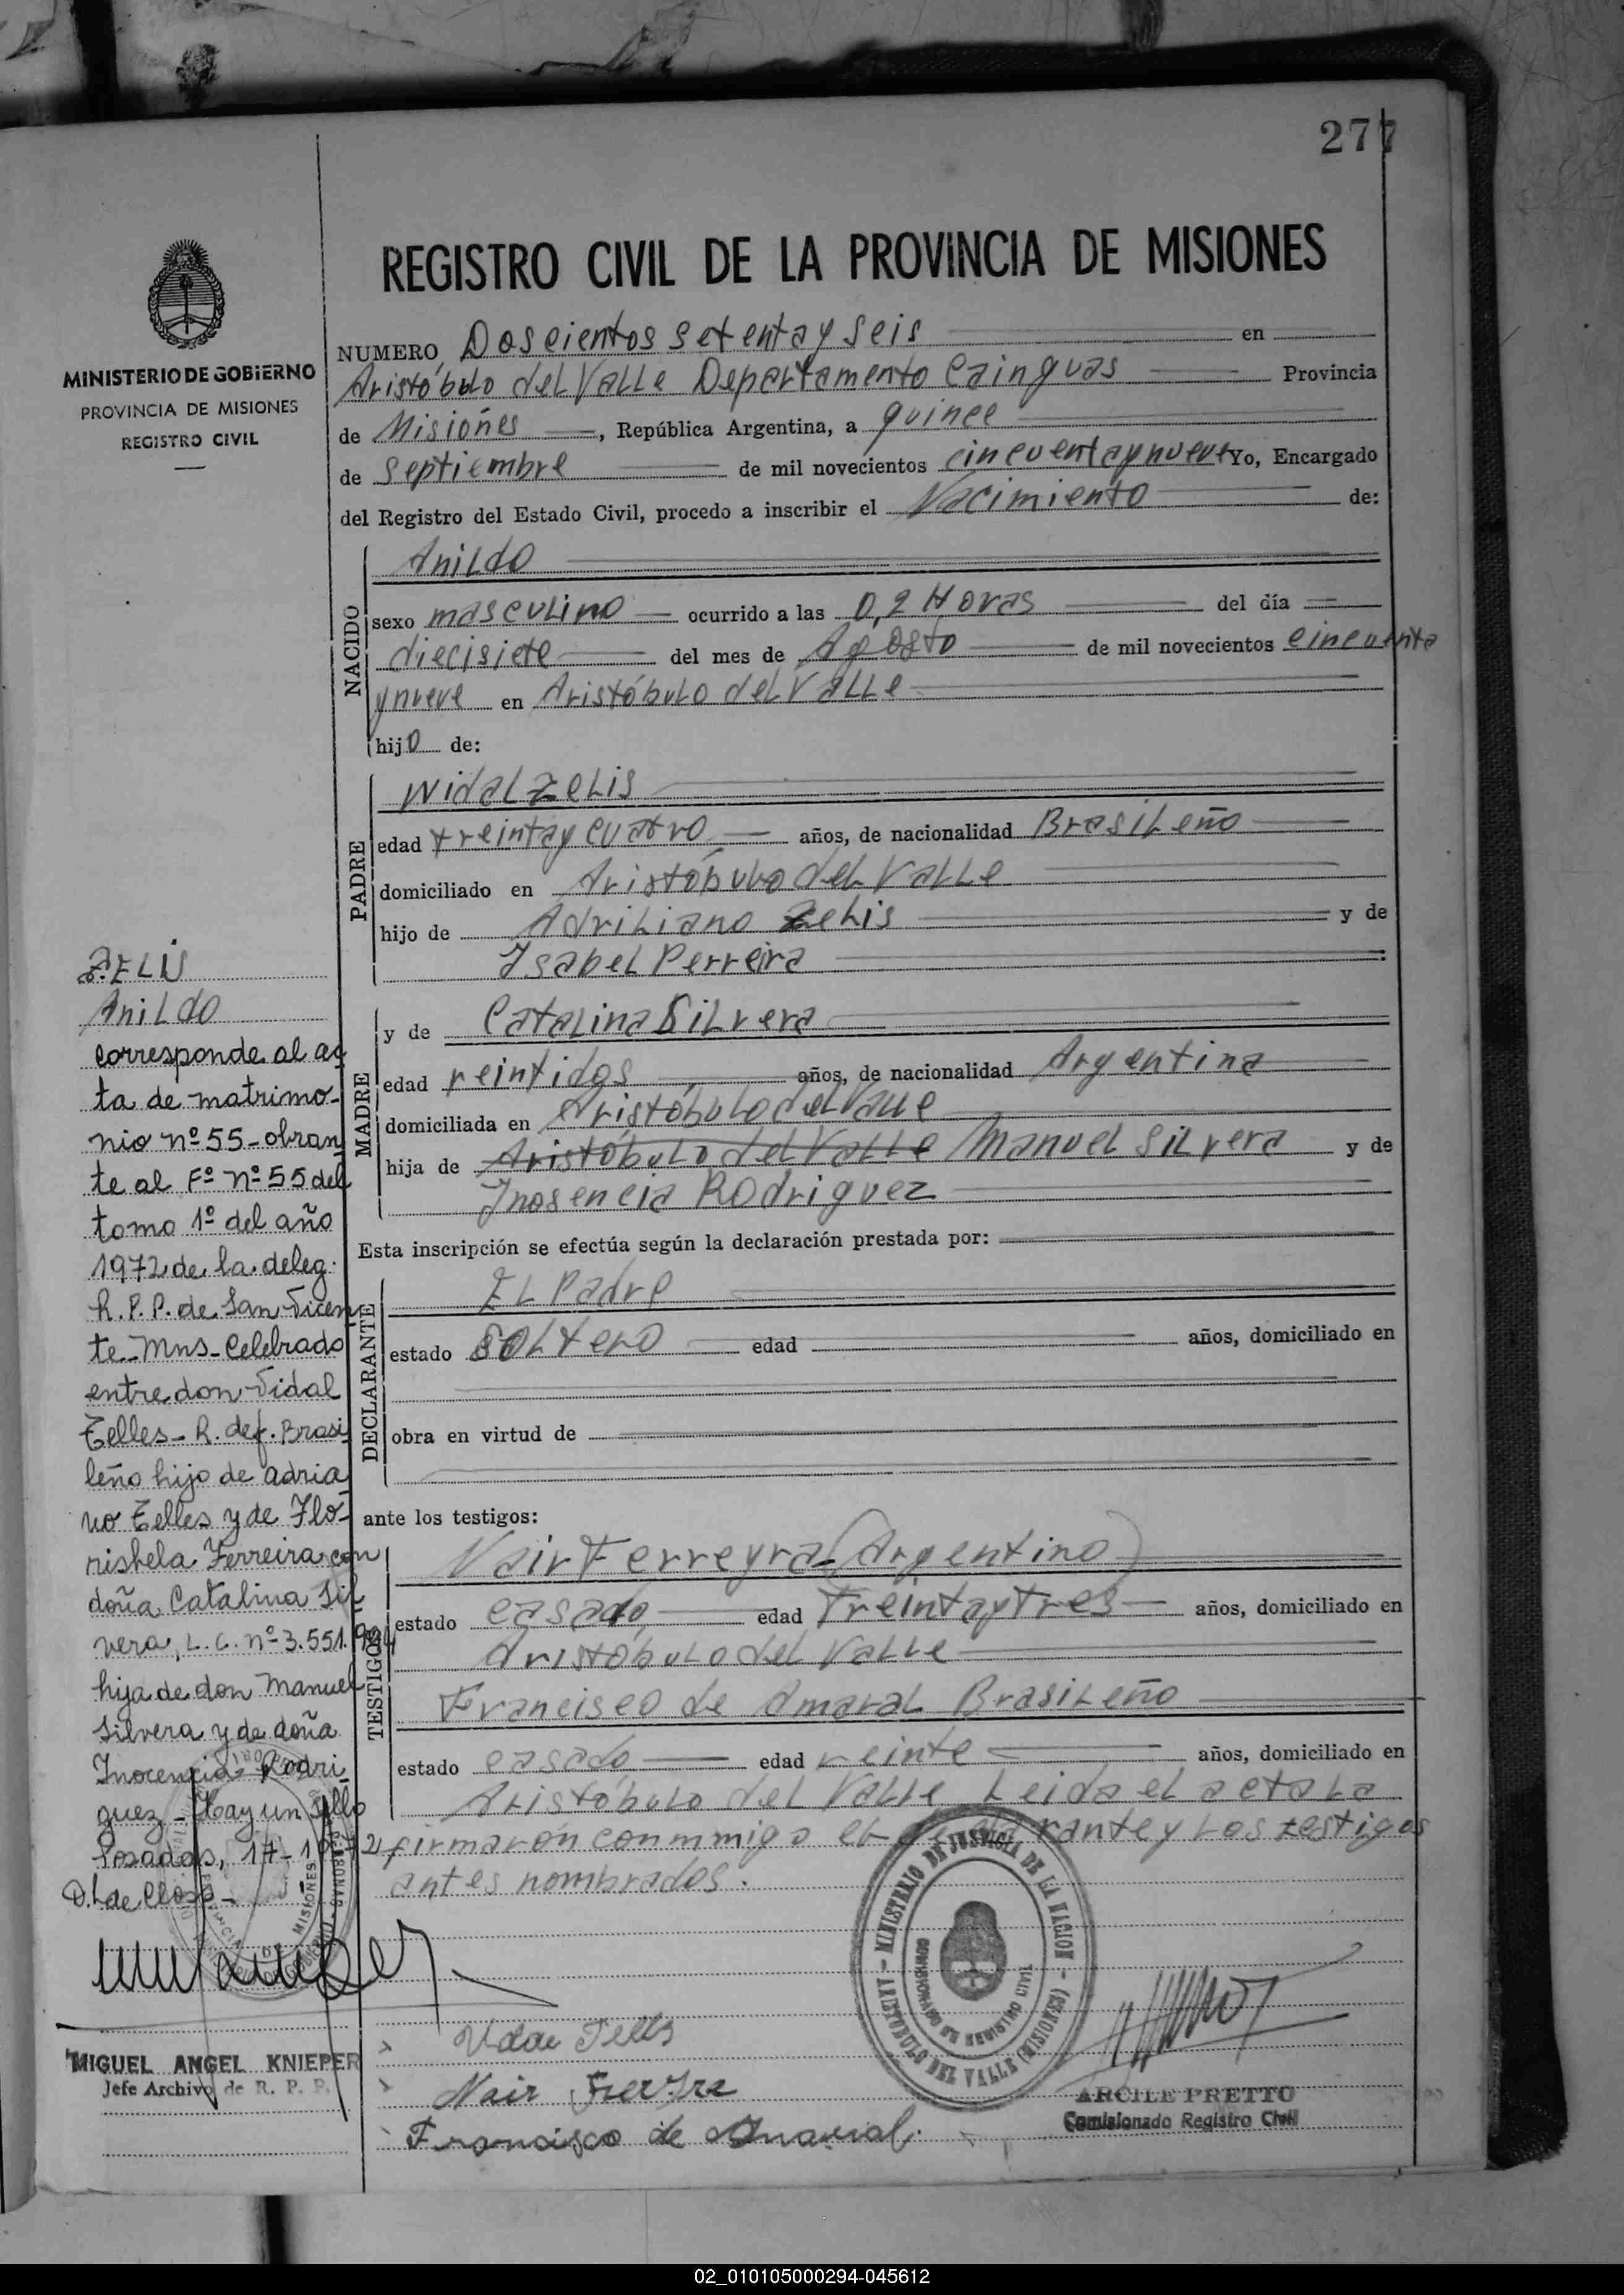 277
REGISTRO CIVIL DE LA PROVINCIA DE MISIONES
MINISTERIO DE GOBIERNO
PROVINCIA DE MISIONES
REGISTRO CIVIL
NUMERO Doscientos setenta y seis en
Aristóbulo del Valle Departamento Cainguas Provincia
de Misiónes, República Argentina, a quince
de septiembre de mil novecientos cincuentaynueve Yo, Encargado
del Registro del Estado Civil, procedo a inscribir el Nacimiento de:
NACIDO
Anildo
sexo masculino ocurrido a las 0,2 Horas del día
diecisiete del mes de Agosto de mil novecientos cincuenta
y nueve en Aristóbulo del Valle
hijo de:
PADRE
Widal Zelis
edad treintaycuatro años, de nacionalidad Brasileño
domiciliado en Aristóbulo del Valle
hijo de Adriliano Zelis y de
Isabel Perreira
MADRE
y de Catalina Silvera
edad veintidos años, de nacionalidad Argentina
domiciliada en Aristóbulo del Valle
hija de Aristóbulo del Valle Manuel Silvera y de
Inosencia Rodriguez
Esta inscripción se efectúa según la declaración prestada por:
DECLARANTE
El Padre
estado soltero edad años, domiciliado en
obra en virtud de
ante los testigos:
TESTIGOS
Nair Ferreyra (Argentino)
estado casado, edad Treintaytres años, domiciliado en
Aristóbulo del Valle
Francisco de Amaral Brasileño
estado casado edad veinte años, domiciliado en
Aristóbulo del Valle Leida el acta la
firmarón conmmigo el rante y los testigos
antes nombrados.
ZELIS
Anildo
corresponde al ac
ta de matrimo-
nio nº 55-obran
te al Fº nº 55 del
tomo 1º del año
1972 de la deleg.
R.P.P. de San Vicen
te-Mns-Celebrado
entre don Vidal
Telles-R. def. Brasi
leño hijo de adria
no Telles y de Flo-
risbela Ferreira con
doña Catalina Sil
vera, L.C. nº 3.551.
hija de don Manuel
Silvera y de doña
Inocencia Rodri
guez-Hay un sello
Posadas, 17-
D.L de Closs-
MIGUEL ANGEL KNIEPER
Jefe Archivo de R. P. P.
Telles
Nair
Francisco de Amaral.
MINISTERIO DE JUSTICIA DE LA NACION
ARISTOBULO DEL VALLE (MISIONES)
ARCILE PRETTO
Comisionado Registro Civil
02_010105000294-045612